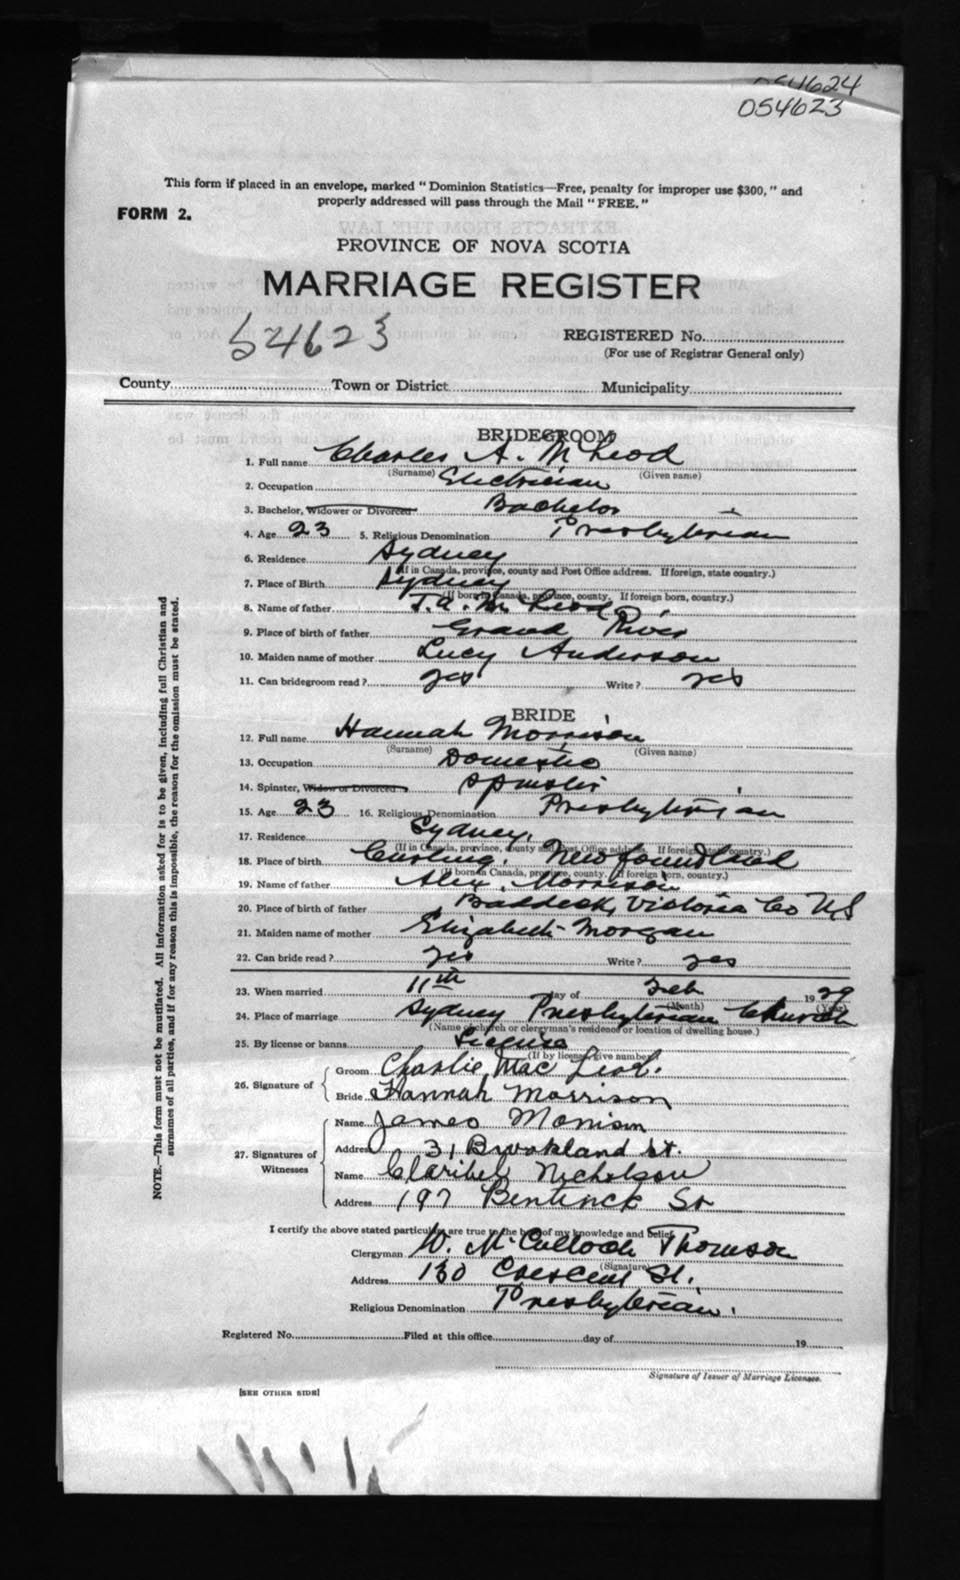 054624
054623
This form if placed in an envelope, marked "Dominion Statistics—Free, penalty for improper use $300," and
properly addressed will pass through the Mail "FREE."
FORM 2.
PROVINCE OF NOVA SCOTIA
MARRIAGE REGISTER
54623
REGISTERED No.
(For use of Registrar General only)
County Town or District Municipality
BRIDEGROOM
1. Full name Charles A. McLeod
(Surname) (Given name)
2. Occupation Electrician
3. Bachelor, Widower or Divorced Bachelor
4. Age 23 5. Religious Denomination Presbyterian
6. Residence Sydney
(If in Canada, province, county and Post Office address. If foreign, state country.)
7. Place of Birth Sydney
(If born in Canada, province, county. If foreign born, country.)
8. Name of father J. A. McLeod
9. Place of birth of father Grand River
10. Maiden name of mother Lucy Anderson
11. Can bridegroom read? yes Write? yes
BRIDE
12. Full name Hannah Morrison
(Surname) (Given name)
13. Occupation Domestic
14. Spinster, Widow or Divorced Spinster
15. Age 23 16. Religious Denomination Presbyterian
17. Residence Sydney.
(If in Canada, province, county and Post Office address. If foreign, state country.)
18. Place of birth Curling, Newfoundland
(If born in Canada, province, county. If foreign born, country.)
19. Name of father Alex. Morrison
20. Place of birth of father Baddeck, Victoria Co NS
21. Maiden name of mother Elizabeth Morgan
22. Can bride read? yes Write? yes
23. When married 11th day of Feb 1929
(Month) (Year)
24. Place of marriage Sydney Presbyterian Church
(Name of church or clergyman's residence or location of dwelling house.)
25. By license or banns License
(If by license, give number)
26. Signature of Groom Charlie MacLeod.
Bride Hannah Morrison
27. Signatures of Witnesses Name James Morrison
Address 31 Brookland St.
Name Claribel Nicholson
Address 197 Bentinck St
I certify the above stated particulars are true to the best of my knowledge and belief.
Clergyman W. McCulloch Thomson
(Signature)
Address 130 Crescent St.
Religious Denomination Presbyterian.
Registered No. Filed at this office day of 19
Signature of Issuer of Marriage Licenses.
[SEE OTHER SIDE]
NOTE.—This form must not be mutilated. All information asked for is to be given, including full Christian and
surnames of all parties, and if for any reason this is impossible, the reason for the omission must be stated.